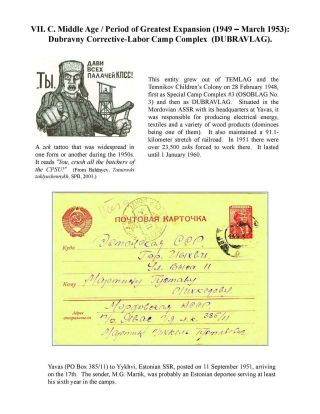 VII. C. Middle Age / Period of Greatest Expansion (1949 – March 1953):
Dubravny Corrective-Labor Camp Complex (DUBRAVLAG).
ТЫ,
ДАВИ
ВСЕХ
ПАЛАЧЕЙ КПСС!
A zek tattoo that was widespread in
one form or another during the 1950s.
It reads "You, crush all the butchers of
the CPSU!" (From Baldayev,
zaklyuchennykh, SPB, 2001.)
This entity grew out of TEMLAG and the
Temnikov Children's Colony on 28 February 1948,
first as Special Camp Complex #3 (OSOBLAG No.
3) and then as DUBRAVLAG. Situated in the
Mordovian ASSR with its headquarters at Yavas, it
was responsible for producing electrical energy,
textiles and a variety of wood products (dominoes
being one of them). It also maintained a 91.1-
kilometer stretch of railroad. In 1951 there were
over 23,500 zeks forced to work there. It lasted
until 1 January 1960.
ПОЧТОВАЯ КАРТОЧКА
Куда Эстонская ССР
Гор. Йыхви
Ул. 11
Кому Мартинку Густаву
Адрес
отправителя
Мордовская АССР
п/о Явас п/я л.к 385/11
Мартик Густавович
Yavas (PO Box 385/11) to Yykhvi, Estonian SSR, posted on 11 September 1951, arriving
on the 17th. The sender, M.G. Martik, was probably an Estonian deportee serving at least
his sixth year in the camps.